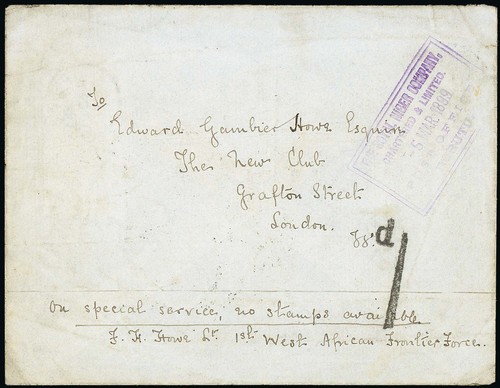 To
Edward Gambier Howe Esquire
The New Club
Grafton Street
London.
W.
THE ROYAL NIGER COMPANY,
CHARTERED & LIMITED.
5 MAR 1899
POST OFFICE
d
1
On special service, no stamps available
F. H. Howe Lt. 1st West African Frontier Force.